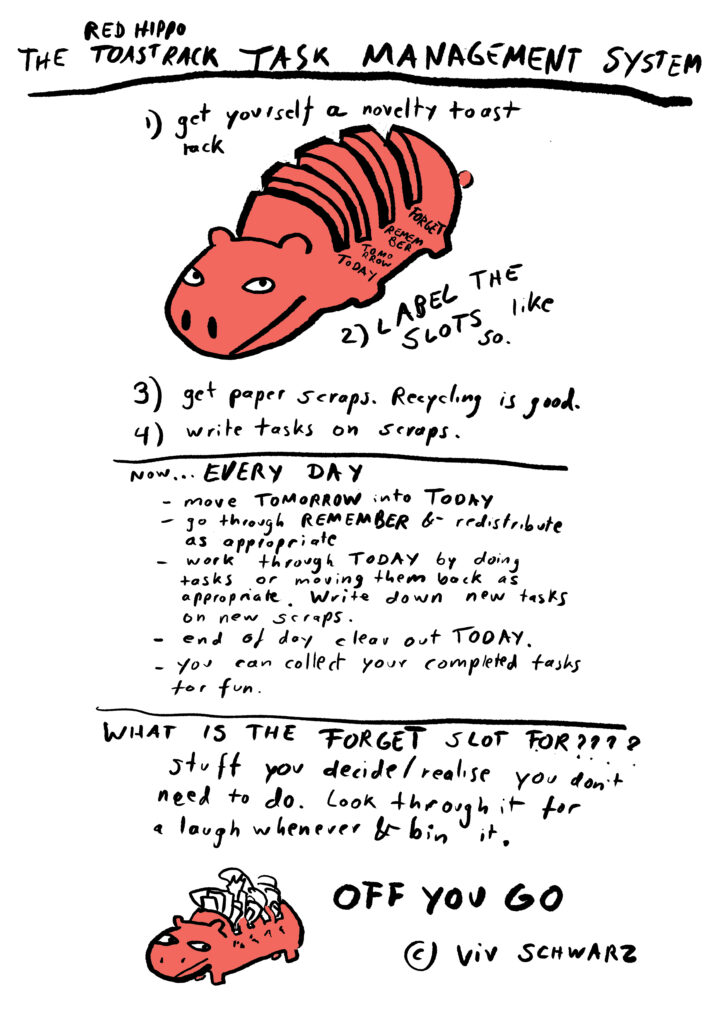 RED HIPPO
THE TOASTRACK TASK MANAGEMENT SYSTEM
1) get yourself a novelty toast
rack
FORGET
REMEM
BER
TOMO
RROW
TODAY
2) LABEL THE
SLOTS like
so.
3) get paper scraps. Recycling is good.
4) write tasks on scraps.
NOW... EVERY DAY
- move TOMORROW into TODAY
- go through REMEMBER & redistribute
as appropriate
- work through TODAY by doing
tasks or moving them back as
appropriate. Write down new tasks
on new scraps.
- end of day clear out TODAY.
- you can collect your completed tasks
for fun.
WHAT IS THE FORGET SLOT FOR????
stuff you decide/realise you don't
need to do. Look through it for
a laugh whenever & bin it.
OFF YOU GO
(c) VIV SCHWARZ